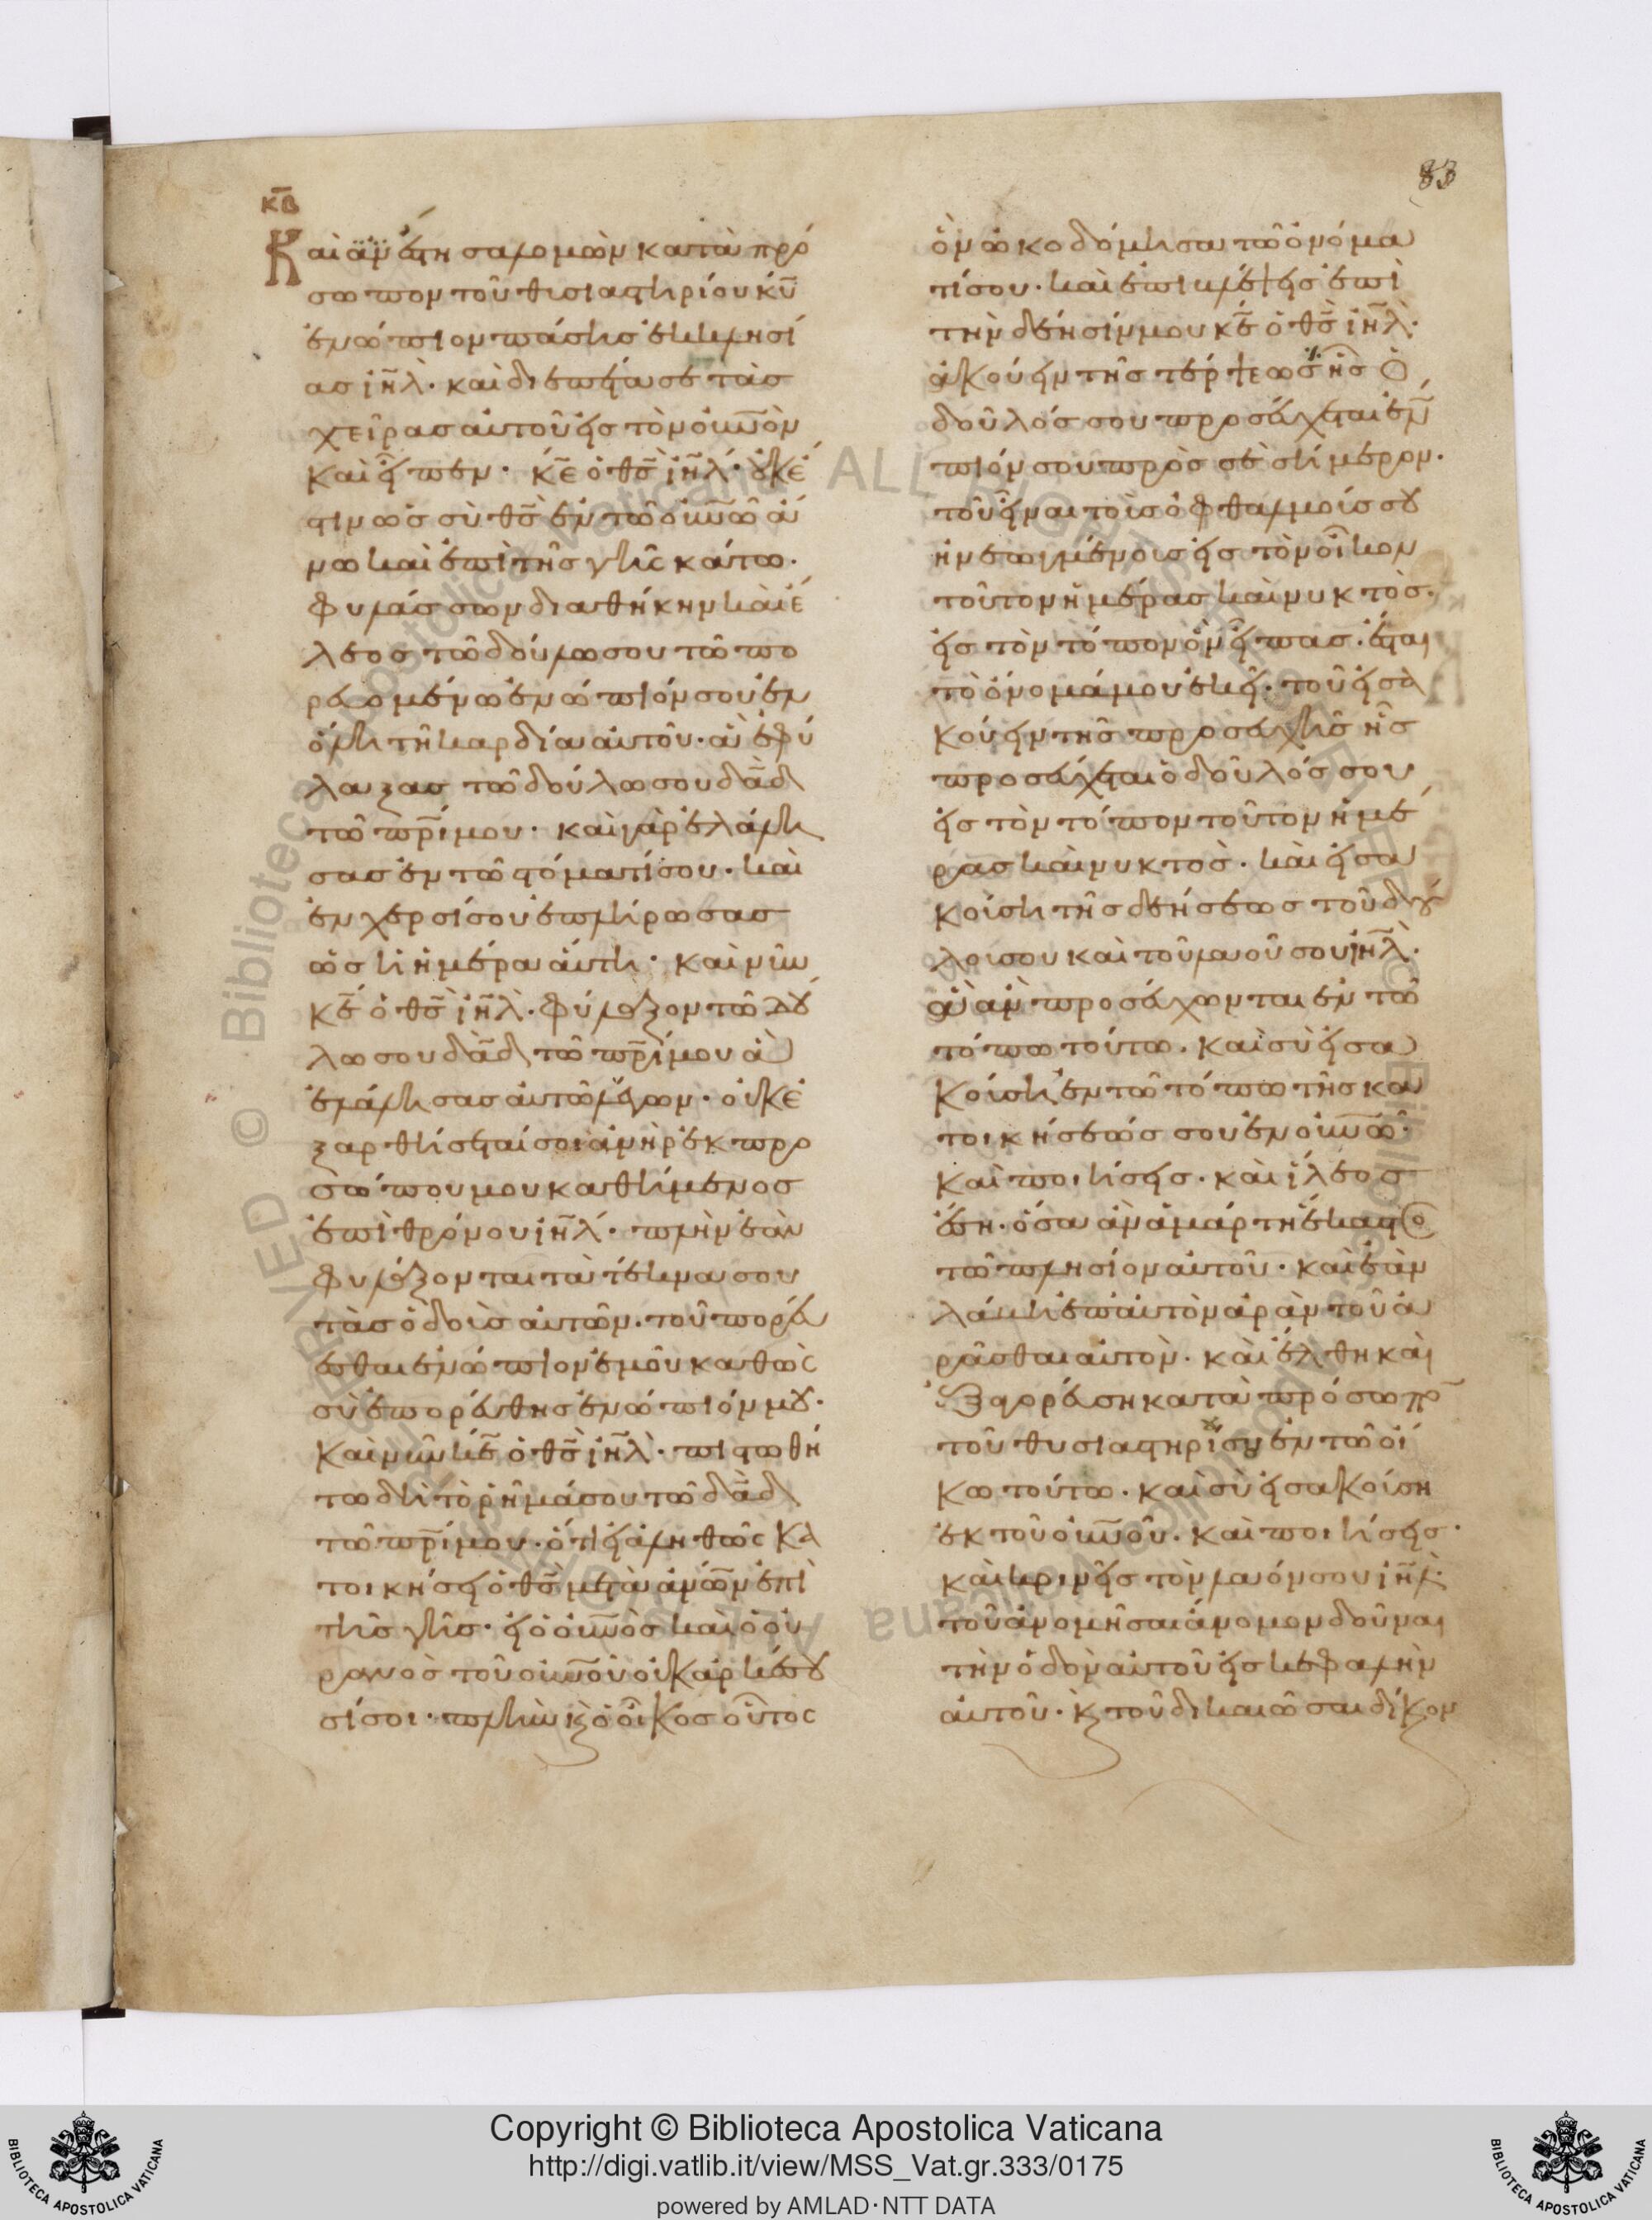 83
κβ
Καὶ ἀνέστη σαλομὼν κατὰ πρό
σωπον τοῦ θυσιαστηρίου κῦ
ἐνώπιον πάσης ἐκκλησί
ασ ἰηλ· καὶ διεπέτασε τὰσ
χεῖρασ αὐτοῦ εἰσ τὸν οὐνὸν
καὶ εἶπεν· κε ὁ θσ ἰηλ· οὐκ ἔ
στιν ὡσ σὺ θσ ἐν τῶ οὐνῶ ἄ
νω καὶ ἐπὶ τῆσ γῆσ κάτω·
φυλάσσων διαθήκην καὶ ἔ
λεοσ τῶ δούλω σου τῶ πο
ρευομένω ἐνώπιόν σου ἐν
ὅλη τῆ καρδία αὐτοῦ· ἃ ἐφύ
λαξασ τῶ δούλω σου δαδ
τῶ πρί μου· καὶ γὰρ ἐλάλη
σασ ἐν τῶ στόματί σου· καὶ
ἐν χερσί σου ἐπλήρωσασ
ὡσ ἡ ἡμέρα αὕτη· καὶ νῦν
κε ὁ θσ ἰηλ· φύλαξον τῶ δού
λω σου δαδ τῶ πρί μου ἃ
ἐλάλησασ αὐτῶ λέγων· οὐκ ἐ
ξαρθήσεταί σοι ἀνὴρ ἐκ προ
σώπου μου καθήμενοσ
ἐπὶ θρόνου ἰηλ· πλὴν ἐὰν
φυλάξονται τὰ τέκνα σου
τὰσ ὁδοὺσ αὐτῶν· τοῦ πορεύ
εσθαι ἐνώπιον ἐμοῦ καθὼσ
σὺ ἐπορεύθησ ἐνώπιόν μου·
Καὶ νῦν κε ὁ θσ ἰηλ· πιστωθή
τω δὴ τὸ ῥῆμά σου τῶ δαδ
τῶ πρί μου· ὅτι εἰ ἀληθῶσ κα
τοικήσει ὁ θσ μετὰ ἀνων ἐπὶ
τῆσ γῆσ· εἰ ὁ οὐνὸσ καὶ ὁ οὐ
ρανοσ τοῦ οὐνοῦ οὐκ ἀρκέσου
σί σοι· πλὴν καὶ ὁ οἶκοσ οὗτοσ
ὃν ὠκοδόμησα τῶ ὀνόμα
τί σου· καὶ ἐπιβλέψεισ ἐπὶ
τὴν δέησίν μου κε ὁ θσ ἰηλ·
ἀκούειν τῆσ τέρψεωσ ἧσ ὁ
δοῦλόσ σου προσεύχεται ἐνώ
πιόν σου πρὸσ σὲ σήμερον·
τοῦ εἶναι τοὺσ ὀφθαλμούσ σου
ἠνεωγμένουσ εἰσ τὸν οἶκον
τοῦτον ἡμέρασ καὶ νυκτὸσ·
εἰσ τὸν τόπον ὃν εἶπασ· ἔσται
τὸ ὄνομά μου ἐκεῖ· τοῦ εἰσα
κούειν τῆσ προσευχῆσ ἧσ
προσεύχεται ὁ δοῦλόσ σου
εἰσ τὸν τόπον τοῦτον ἡμέ
ρασ καὶ νυκτὸσ· καὶ εἰσα
κούση τῆσ δεήσεωσ τοῦ δού
λου σου καὶ τοῦ λαοῦ σου ἰηλ·
ἃ ἂν προσεύχωνται ἐν τῶ
τόπω τούτω· καὶ σὺ εἰσα
κούση ἐν τῶ τόπω τῆσ κα
τοικήσεώσ σου ἐν οὐνῶ·
καὶ ποιήσεισ· καὶ ἵλεοσ
ἔση· ὅσα ἂν ἁμάρτη ἕκαστοσ
τῶ πλησίον αὐτοῦ· καὶ ἐὰν
λάβη ἐπ αὐτὸν ἀρὰν τοῦ ἀ
ρᾶσθαι αὐτὸν· καὶ ἔλθη καὶ
ἐξαγορεύση κατὰ πρόσωπον
τοῦ θυσιαστηρίου σου ἐν τῶ οἴ
κω τούτω· καὶ σὺ εἰσακούση
ἐκ τοῦ οὐνοῦ· καὶ ποιήσεισ·
καὶ κρινεῖσ τὸν λαόν σου ἰηλ·
τοῦ ἀνομῆσαι ἄνομον δοῦναι
τὴν ὁδὸν αὐτοῦ εἰσ κεφαλὴν
αὐτοῦ· καὶ τοῦ δικαιῶσαι δίκαιον
Copyright © Biblioteca Apostolica Vaticana
http://digi.vatlib.it/view/MSS_Vat.gr.333/0175
powered by AMLAD·NTT DATA